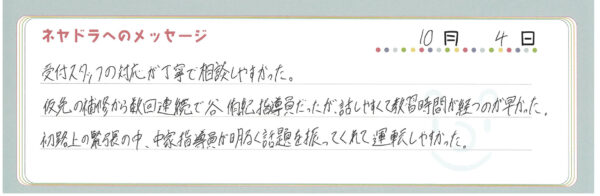 ネヤドラへのメッセージ
10月 4日
受付スタッフの対応が丁寧で相談しやすかった。
仮免の補修から数回連続で谷 侑紀指導員だったが、話しやすくて教習時間が経つのが早かった。
初路上の緊張の中、中家指導員が明るく話題を振ってくれて運転しやすかった。